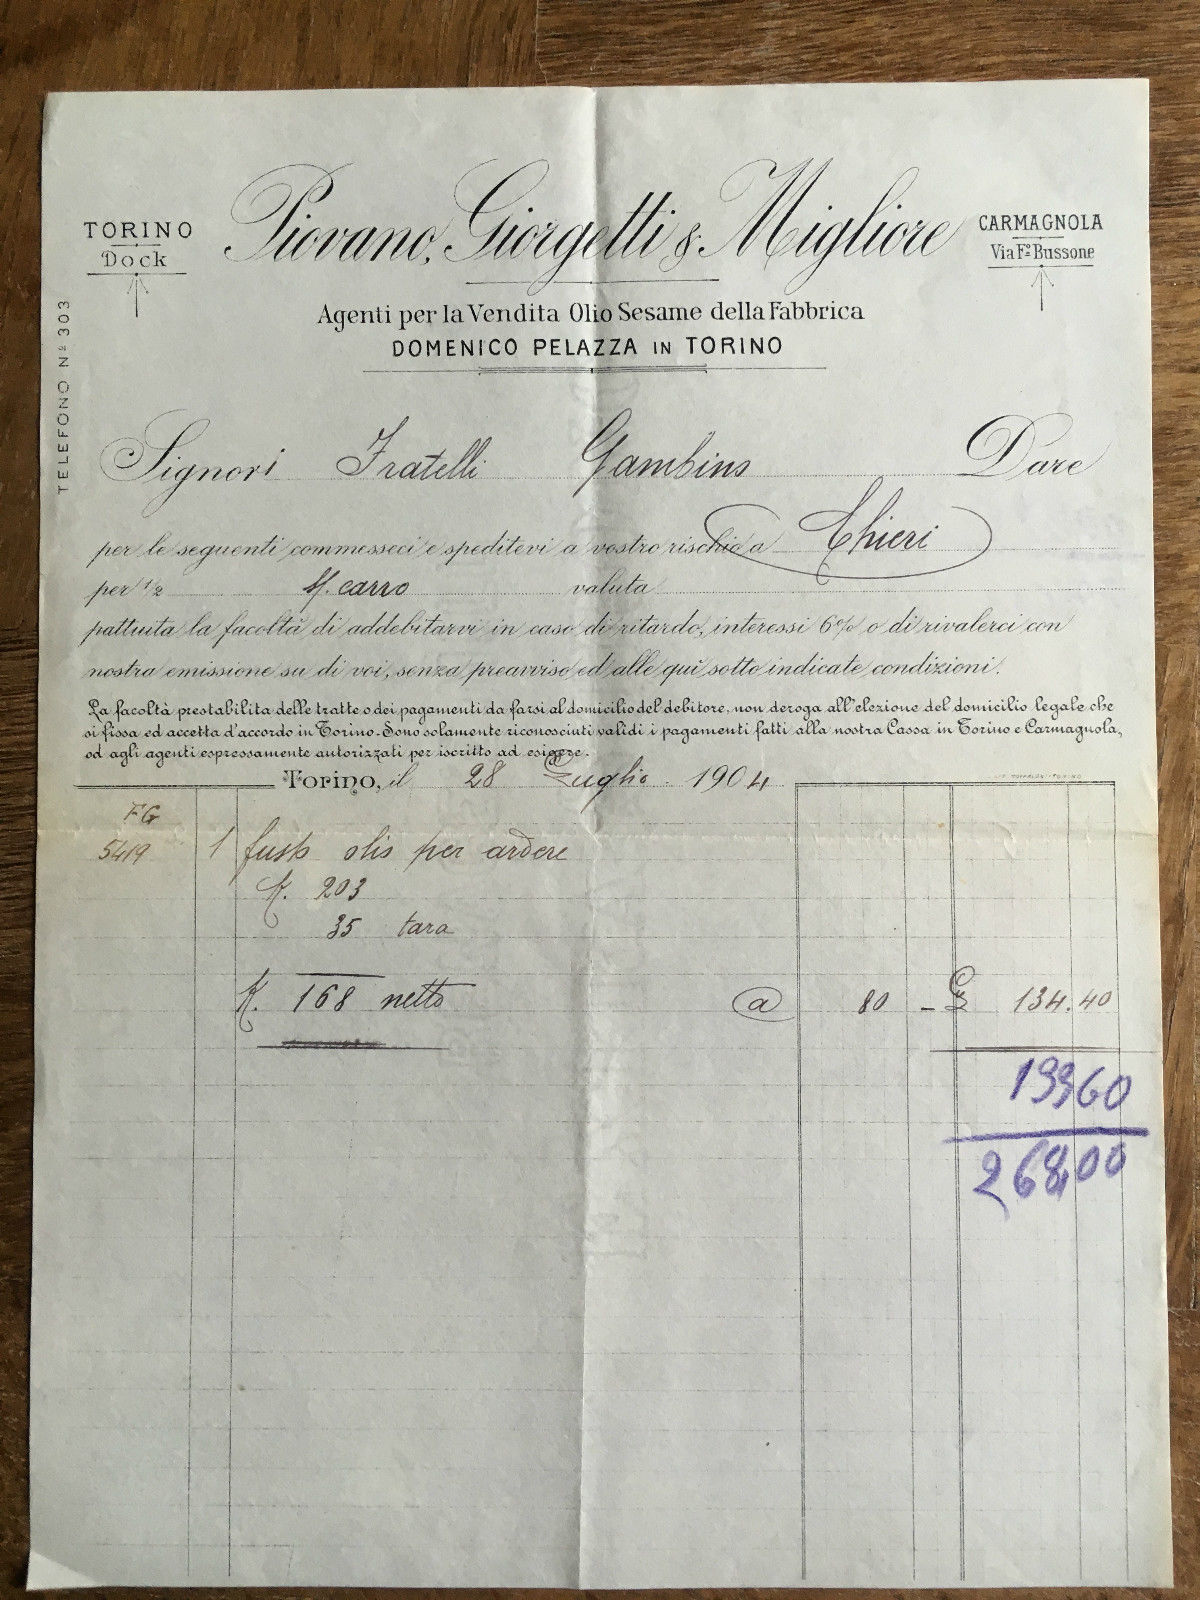 TORINO
Dock
Piovano, Giorgetti & Migliore
CARMAGNOLA
Via F.º Bussone
TELEFONO Nº 303
Agenti per la Vendita Olio Sesame della Fabbrica
DOMENICO PELAZZA IN TORINO
Signori Fratelli Gambino Dare
per le seguenti commesseci e speditevi a vostro rischio a Chieri
per ½ s/. carro valuta
pattuita la facoltà di addebitarvi in caso di ritardo, interessi 6% o di rivalerci con
nostra emissione su di voi, senza preavviso ed alle qui sotto indicate condizioni.
La facoltà prestabilita delle tratte o dei pagamenti da farsi al domicilio del debitore, non deroga all'elezione del domicilio legale che
si fissa ed accetta d'accordo in Torino. Sono solamente riconosciuti validi i pagamenti fatti alla nostra Cassa in Torino e Carmagnola,
od agli agenti espressamente autorizzati per iscritto ad esigere.
Torino, il 28 Luglio 1904
FG
5419 1 fusto olio per ardere
K. 203
35 tara
K. 168 netto @ 80 - £ 134.40
13360
268,00